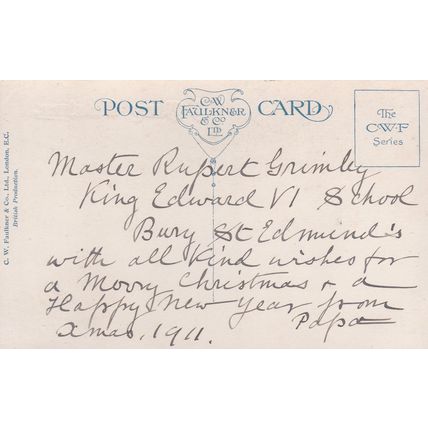 POST CARD
C.W.
FAULKNER
& Co
LTD
The
C.W.F
Series
C. W. Faulkner & Co., Ltd., London, E.C.
British Production.
Master Rupert Grimley
King Edward VI School
Bury St Edmund's
with all kind wishes for
a Merry Christmas & a
Happy New Year from
Papa
Xmas. 1911.